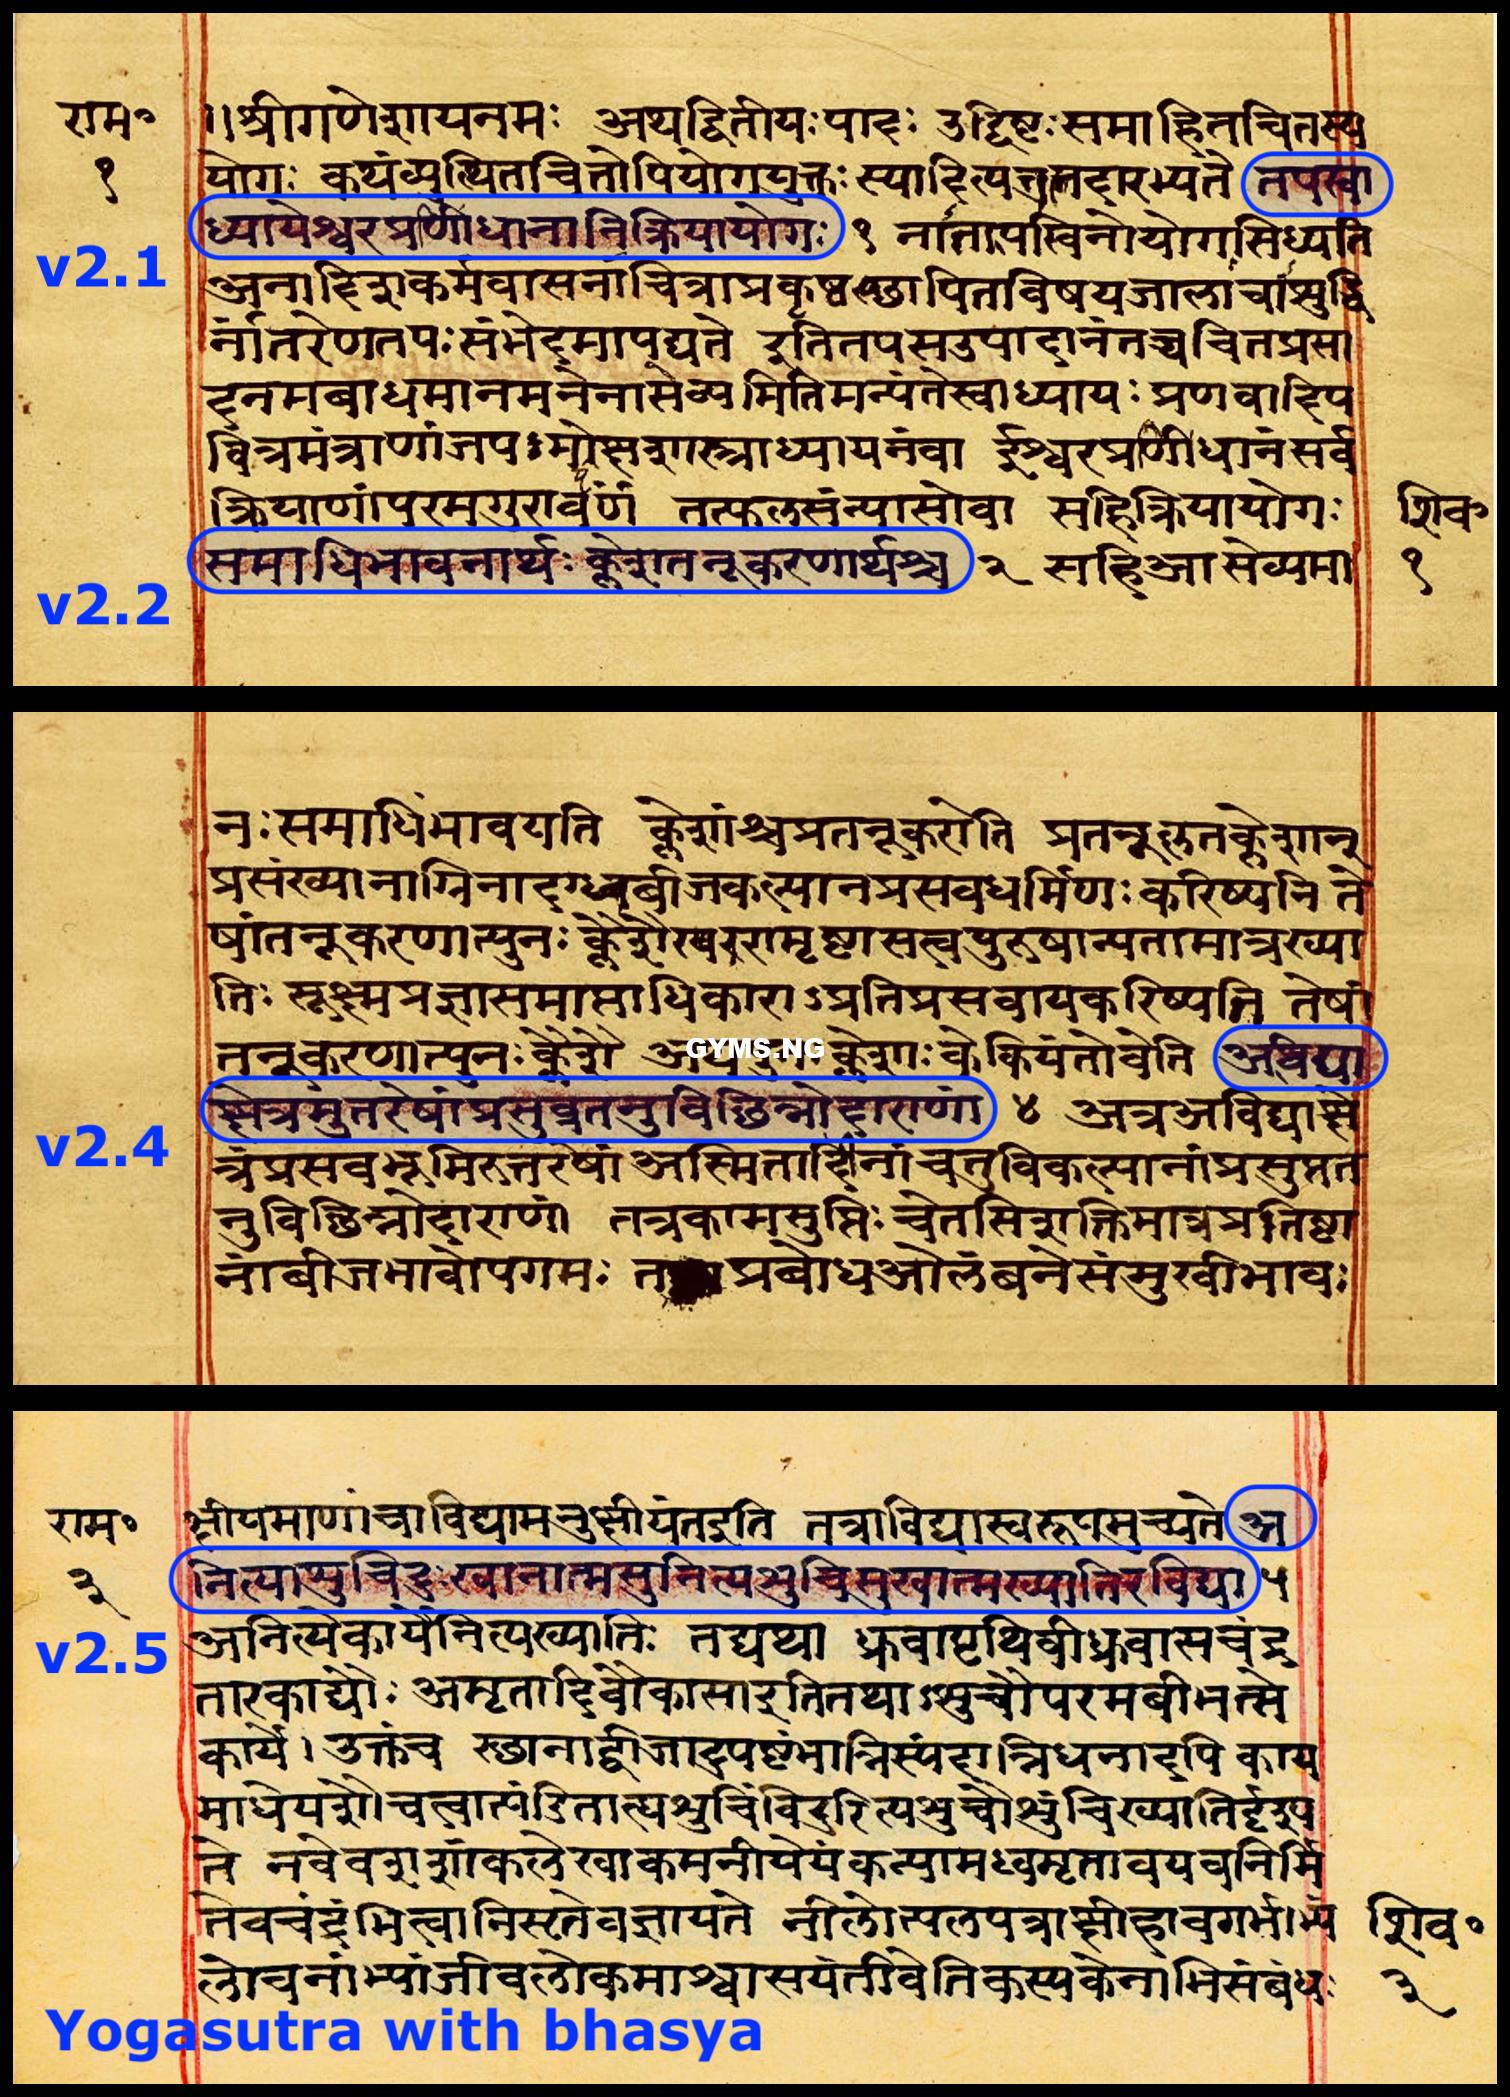 राम॰ ॥श्रीगणेशायनमः अथद्वितीयःपादः उद्दिष्टःसमाहितचित्तस्य
१ योगः कथंव्युत्थितचित्तोपियोगयुक्तःस्यादित्येतदारभ्यते तपस्वा
ध्यायेश्वरप्रणिधानानिक्रियायोगः १ नातपस्विनोयोगसिध्यति
v2.1
अनादिक्लेशकर्मवासनाचित्राप्रत्युपस्थापितविषयजालाचाशुद्धि
र्नांतरेणतपःसंभेदमापद्यते इतितपसउपादानंतच्चचितप्रसा
दनमबाधमानमनेनासेव्यमितिमन्यंतेस्वाध्यायः प्रणवादिप
वित्रमंत्राणांजपःमोक्षशास्त्राध्यायनंवा ईश्वरप्रणिधानंसर्व
क्रियाणांपरमगुरावर्पणं तत्फलसंन्यासोवा सहिक्रियायोगः शिव॰
समाधिभावनार्थः क्लेशतनूकरणार्थश्च २ सहिआसेव्यमा १
v2.2
नःसमाधिंभावयति क्लेशांश्चप्रतनूकरोति प्रतनूकृतक्लेशान्
प्रसंख्यानाग्निनादग्धबीजकल्पानप्रसवधर्मिणःकरिष्यति ते
षांतनूकरणात्पुनः क्लेशैरपरामृष्टासत्त्वपुरुषान्यतामात्रख्या
तिः सूक्ष्मप्रज्ञासमाप्ताधिकाराऽप्रतिप्रसवायकरिष्यति तेषां
तनूकरणात्पुनःक्लेशै क्लेशाःकेकियंतोवेति अविद्या
GYMS.NG
क्षेत्रमुत्तरेषांप्रसुप्ततनुविछिन्नोदाराणां ४ अत्रअविद्याक्षे
v2.4
त्रंप्रसवभूमिरुत्तरेषांअस्मितादीनांचतुर्विकल्पानांप्रसुप्तत
नुविछिन्नोदाराणां तत्रकाप्रसुप्तिः चेतसिशक्तिमात्रप्रतिष्टा
नांबीजभावोपगमः प्रबोधआलंबनेसंमुखीभावः
राम॰ क्षीयमाणांचाविद्यामनुक्षीयंतइति तत्राविद्यास्वरूपमुच्यते अ
३ नित्याशुचिदुःखानात्मसुनित्यशुचिसुखात्मख्यातिरविद्या ५
v2.5
अनित्येकार्येनित्यख्यातिः तद्यथा ध्रुवापृथिवीध्रुवासचंद्र
तारकाद्यौः अमृतादिवौकासाइतितथाऽशुचौपरमबीभत्से
काये। उक्तंच स्थानाद्बीजादुपष्टंभान्निस्यंदान्निधनादपि काय
माधेयशौचत्वात्पंडिताह्यशुचिंविदुरित्यशुचौशुचिख्यातिर्दृश्य
ते नवेवशशांकलेखाकमनीयेयंकन्यामध्वमृतावयवनिर्मि
तेवचंद्रंभित्वानिसृतेवज्ञायते नीलोत्पलपत्राक्षीहावगर्भाभ्यां शिव॰
लोचनाभ्यांजीवलोकमाश्वासयंतीवेतिकस्यकेनाभिसंबंधः ३
Yogasutra with bhasya